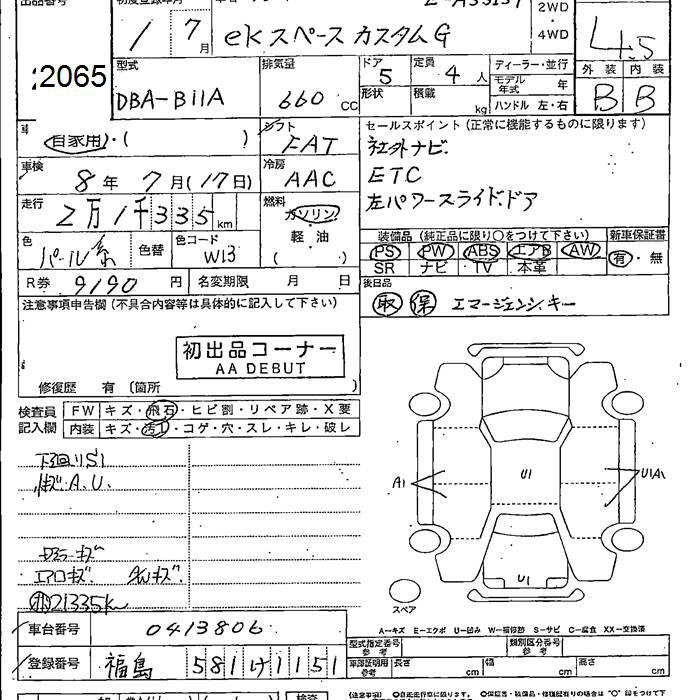 出品番号
初度登録年月
2WD
4WD
1 7月
ekスペース カスタムG
4.5
2065
型式
排気量
ドア
定員
ディーラー・並行
外装 内装
DBA-B11A
660 CC
5
4 人
モデル年式 年
形状
積載 kg
ハンドル 左・右
B B
自家用・( )
シフト
FAT
セールスポイント (正常に機能するものに限ります)
社外ナビ
ETC
左パワースライドドア
車検
8年 7月(17日)
冷房
AAC
走行
2万1千335km
燃料
ガソリン・
軽・油
( )
色
パール系
色替
色コード
W13
装備品 (純正品に限り○をつけて下さい)
新車保証書
PS PW ABS エアB AW
有・無
SR ナビ TV 本革
R券 9190 円
名変期限 月 日
後日品
取 保 エマージェンシーキー
注意事項申告欄 (不具合内容等は具体的に記入して下さい)
初出品コーナー
AA DEBUT
修復歴 有 (箇所 )
検査員
記入欄
FW キズ・飛石・ヒビ割・リペア跡・X要
内装 キズ・汚れ・コゲ・穴・スレ・キレ・破レ
下廻りS1
A.U.
エアロキズ
21335k
A1
U1
U1A1
U1
スペア
A―キズ E―エクボ U―凹み W―補修跡 S―サビ C―腐食 XX―交換済
車台番号
0413806
型式指定番号
参考
類別区分番号
参考
登録番号
福島 581 け 1151
車庫証明用
参考
長さ cm
幅 cm
高さ cm